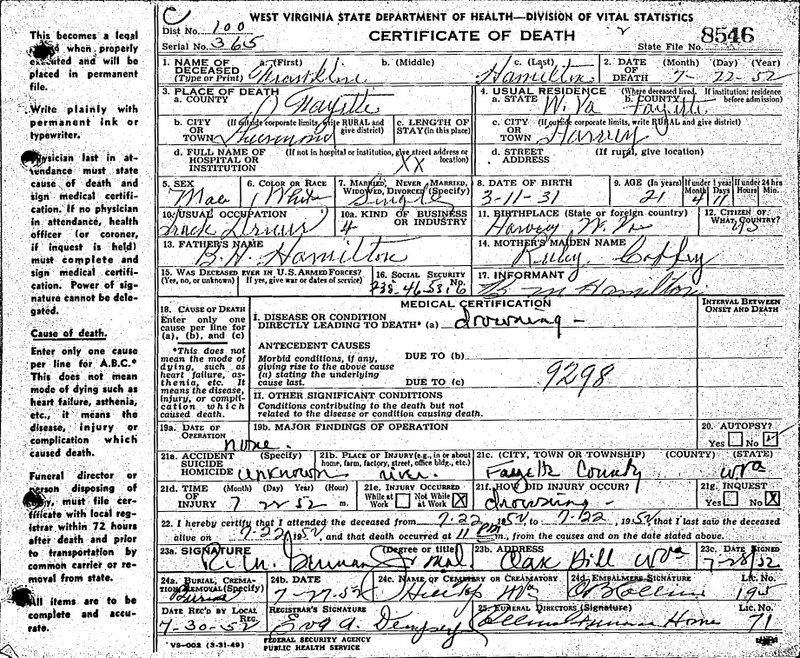 This becomes a legal
when properly
executed and will be
placed in permanent
file.
Write plainly with
permanent ink or
typewriter.
Physician last in at-
tendance must state
cause of death and
sign medical certifi-
cation. If no physician
in attendance, health
officer (or coroner,
if inquest is held)
must complete and
sign medical certifi-
cation. Power of sig-
nature cannot be dele-
gated.
Cause of death.
Enter only one cause
per line for A.B.C.*
This does not mean
mode of dying such as
heart failure, asthenia,
etc., it means the
disease, injury or
complication which
caused death.
Funeral director or
person disposing of
body, must file cer-
tificate with local reg-
istrar within 72 hours
after death and prior
to transportation by
common carrier or re-
moval from state.
All items are to be
complete and accu-
rate.
WEST VIRGINIA STATE DEPARTMENT OF HEALTH—DIVISION OF VITAL STATISTICS
Dist No. 100
CERTIFICATE OF DEATH
Serial No. 365
State File No. 8546
1. NAME OF DECEASED (Type or Print) a. (First) Franklin b. (Middle) c. (Last) Hamilton
2. DATE OF DEATH (Month) (Day) (Year) 7-22-52
3. PLACE OF DEATH
a. COUNTY Fayette
4. USUAL RESIDENCE (Where deceased lived. If institution: residence before admission)
a. STATE W. Va b. COUNTY Fayette
b. CITY OR TOWN (If outside corporate limits, write RURAL and give district) Thurmond
c. LENGTH OF STAY (in this place)
c. CITY OR TOWN (If outside corporate limits, write RURAL and give district) Harvey
d. FULL NAME OF HOSPITAL OR INSTITUTION (If not in hospital or institution, give street address or location) XX
d. STREET ADDRESS (If rural, give location)
5. SEX Male
6. COLOR OR RACE White
7. MARRIED, NEVER MARRIED, WIDOWED, DIVORCED (Specify) Single
8. DATE OF BIRTH 3-11-31
9. AGE (In years) 21 If under 1 year Month 4 Days 11 If under 24 hrs Hours Min.
10. USUAL OCCUPATION Truck Driver
10a. KIND OF BUSINESS OR INDUSTRY 4
11. BIRTHPLACE (State or foreign country) Harvey W. Va
12. CITIZEN OF WHAT COUNTRY? US
13. FATHER'S NAME B. H. Hamilton
14. MOTHER'S MAIDEN NAME Ruby Coffey
15. WAS DECEASED EVER IN U.S. ARMED FORCES?
(Yes, no, or unknown) (If yes, give war or dates of service)
16. SOCIAL SECURITY No. 238-46-5316
17. INFORMANT Hamilton
MEDICAL CERTIFICATION
INTERVAL BETWEEN ONSET AND DEATH
18. CAUSE OF DEATH
Enter only one
cause per line for
(a), (b), and (c)
*This does not
mean the mode of
dying, such as
heart failure, as-
thenia, etc. It
means the disease,
injury, or compli-
cation which
caused death.
I. DISEASE OR CONDITION
DIRECTLY LEADING TO DEATH* (a) drowning -
ANTECEDENT CAUSES
Morbid conditions, if any,
giving rise to the above cause
(a) stating the underlying
cause last.
DUE TO (b)
DUE TO (c)
9298
II. OTHER SIGNIFICANT CONDITIONS
Conditions contributing to the death but not
related to the disease or condition causing death.
19a. DATE OF OPERATION none.
19b. MAJOR FINDINGS OF OPERATION
20. AUTOPSY? Yes No
21a. ACCIDENT SUICIDE HOMICIDE (Specify) unknown
21b. PLACE OF INJURY (e.g., in or about home, farm, factory, street, office bldg., etc.) river.
21c. (CITY, TOWN OR TOWNSHIP) (COUNTY) (STATE) Fayette County wva
21d. TIME OF INJURY (Month) (Day) (Year) (Hour) 7 22 52 m.
21e. INJURY OCCURRED While at Work Not While at Work X
21f. HOW DID INJURY OCCUR? drowning -
21g. INQUEST Yes No X
22. I hereby certify that I attended the deceased from 7-22 1952 to 7-22, 1952 that I last saw the deceased
alive on 7-22 1952, and that death occurred at 11 PM m., from the causes and on the date stated above.
23a. SIGNATURE (Degree or title) Jr MD.
23b. ADDRESS Oak Hill Wva
23c. DATE SIGNED 7-28/52
24a. BURIAL, CREMATION REMOVAL (Specify) Burial
24b. DATE 7-27-52
24c. NAME OF CEMETERY OR CREMATORY Hilltop Wva
24d. EMBALMERS SIGNATURE Collins
Lic. No. 195
DATE REC'D BY LOCAL REG. 7-30-52
REGISTRAR'S SIGNATURE Eva A. Dempsey
25. FUNERAL DIRECTORS (Signature) Collins Funeral Home
Lic. No. 71
VS-002 (3-31-49)
FEDERAL SECURITY AGENCY
PUBLIC HEALTH SERVICE